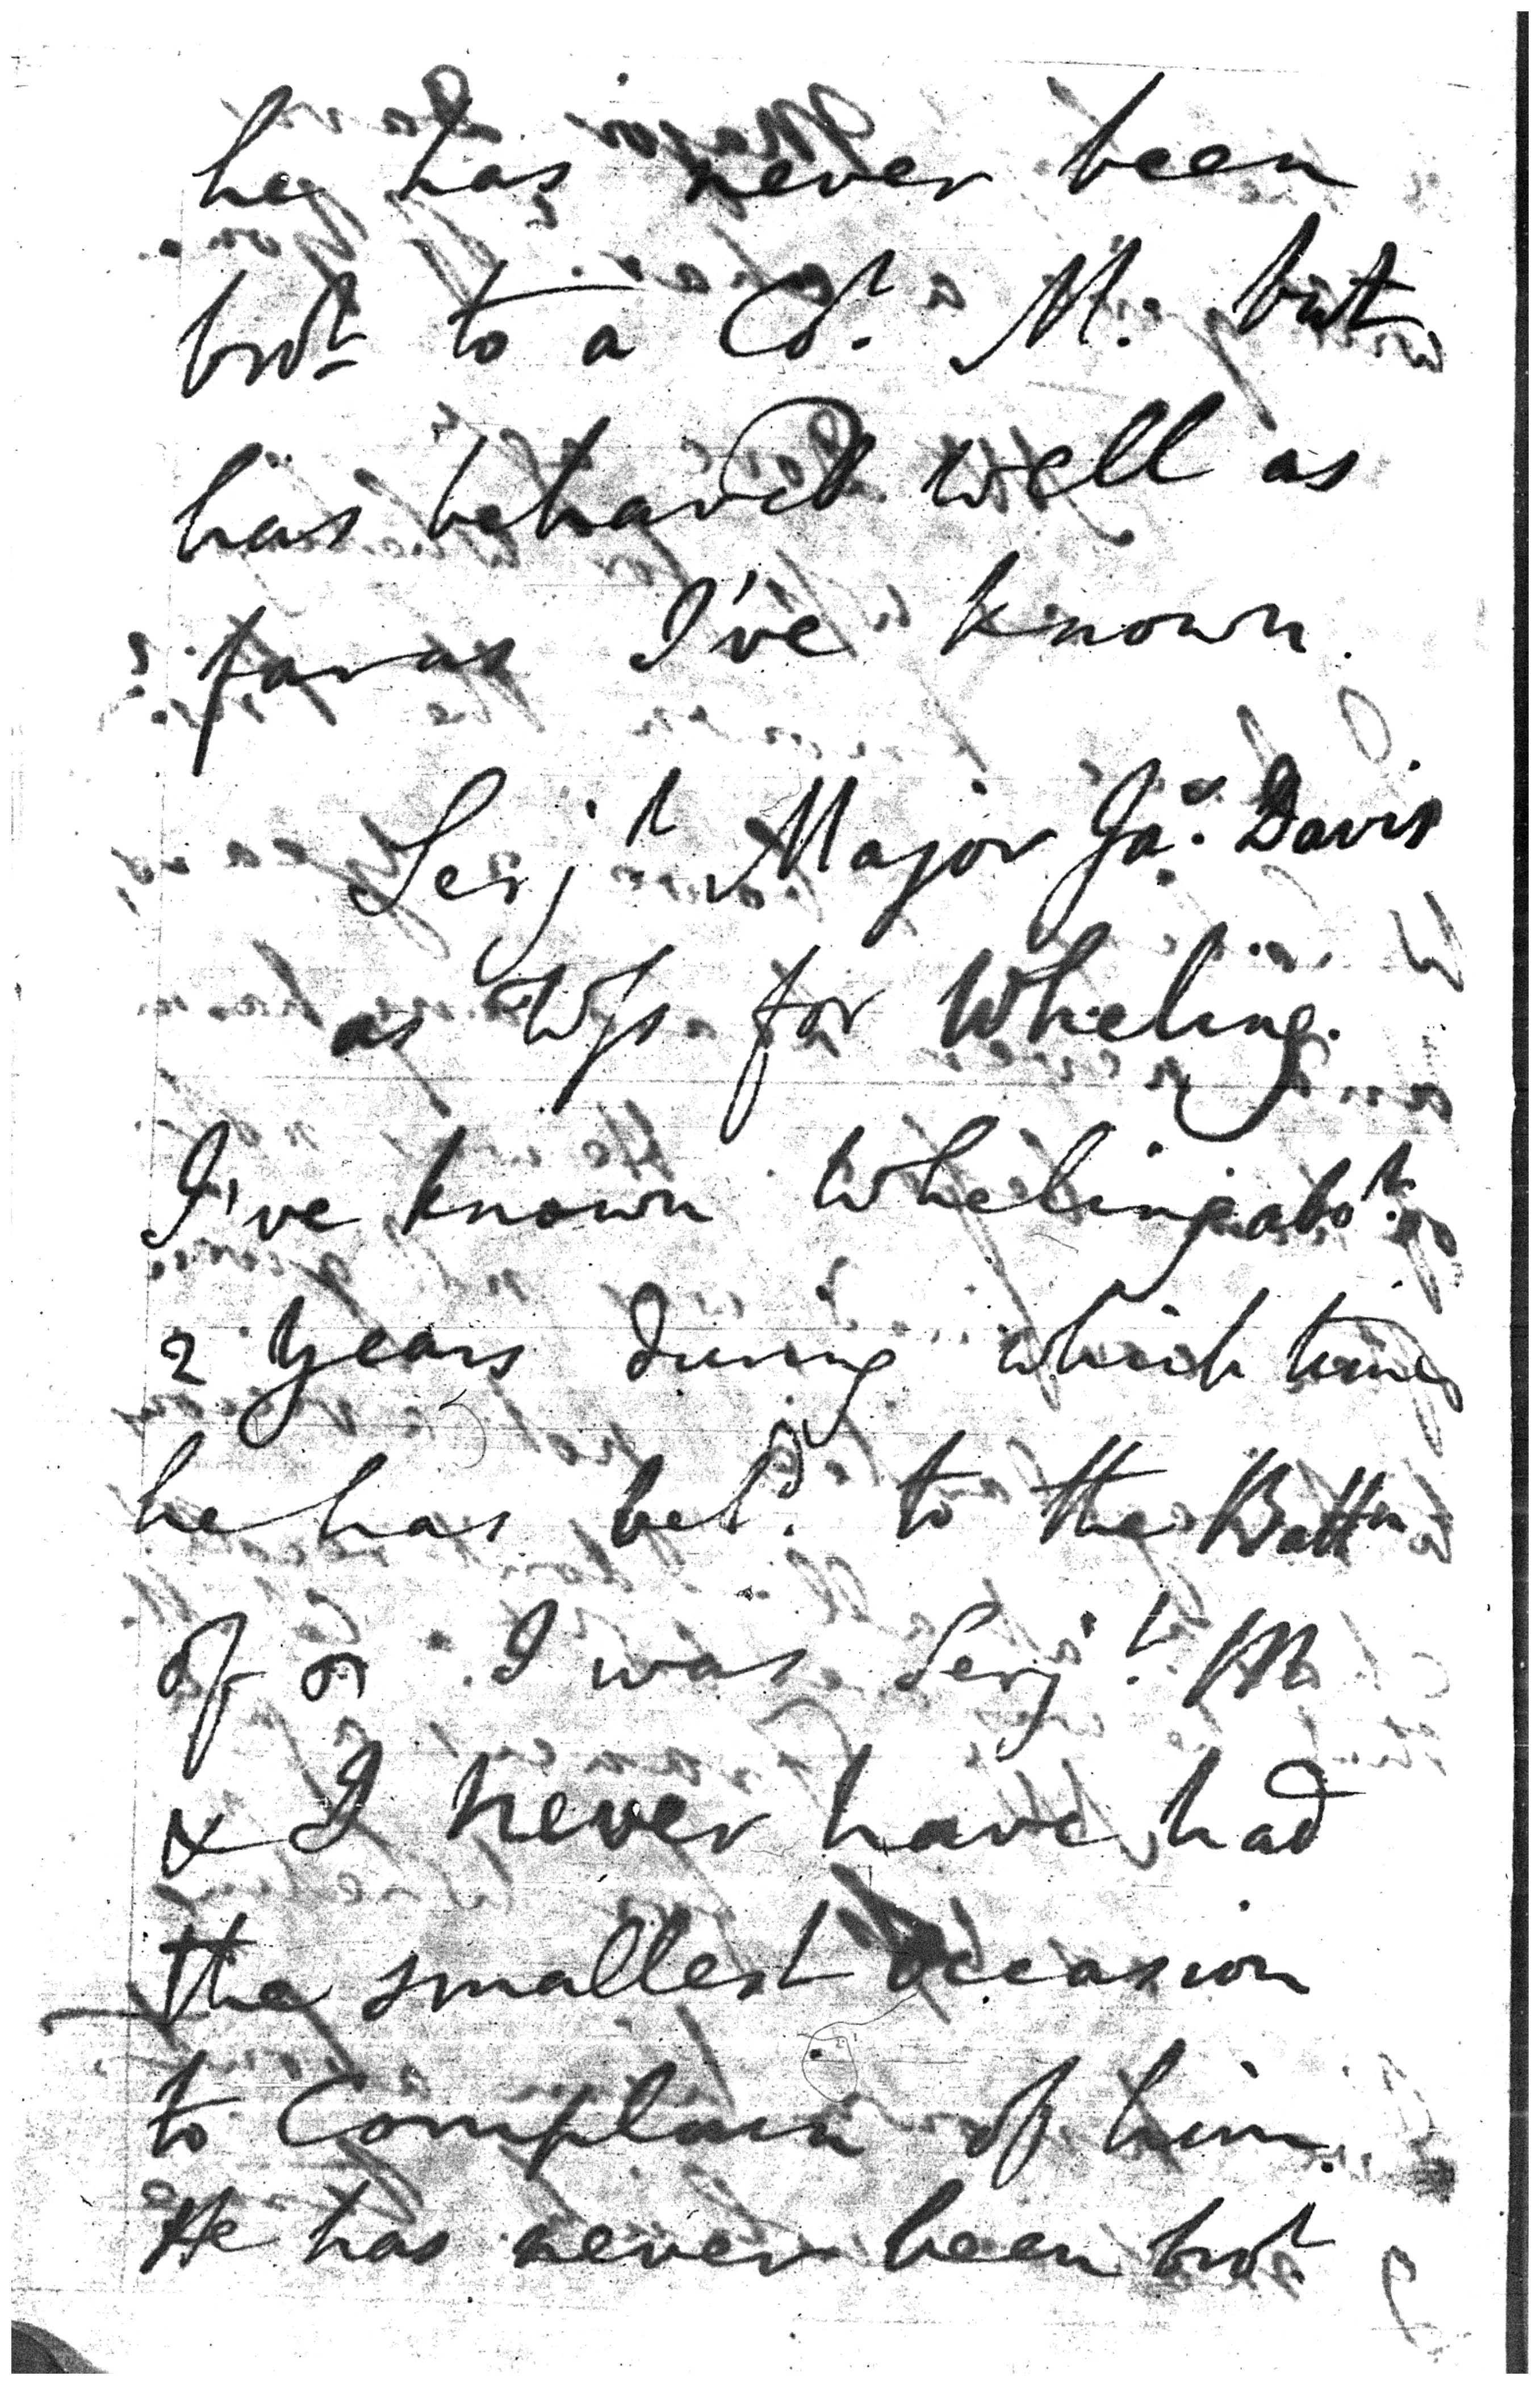 he has never been
brot to a Ct. M. but
has behaved well as
far as I've known.
Serjt Major Jas. Davis
as Wss for Wheling.
I've known Wheling abot.
2 Years during which time
he has beld. to the Battn
of I was Serjt. M
& I never have had
the smallest occasion
to Complain of him.
He has never been brot